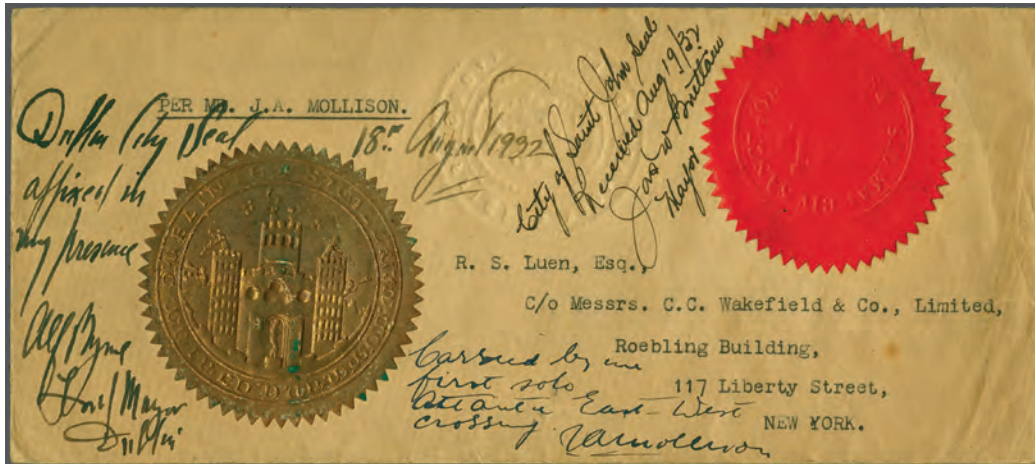 PER MR. J.A. MOLLISON.
Dublin City Seal
affixed in
my presence
Alf Byrne
Lord Mayor
Dublin
18th August 1932
City of Saint John Seal
Received Aug 19/32
Jas W Brittain
Mayor
R. S. Luen, Esq.,
C/o Messrs. C.C. Wakefield & Co., Limited,
Roebling Building,
117 Liberty Street,
NEW YORK.
Carried by me
first solo
Atlantic East-West
crossing.
JAMollison